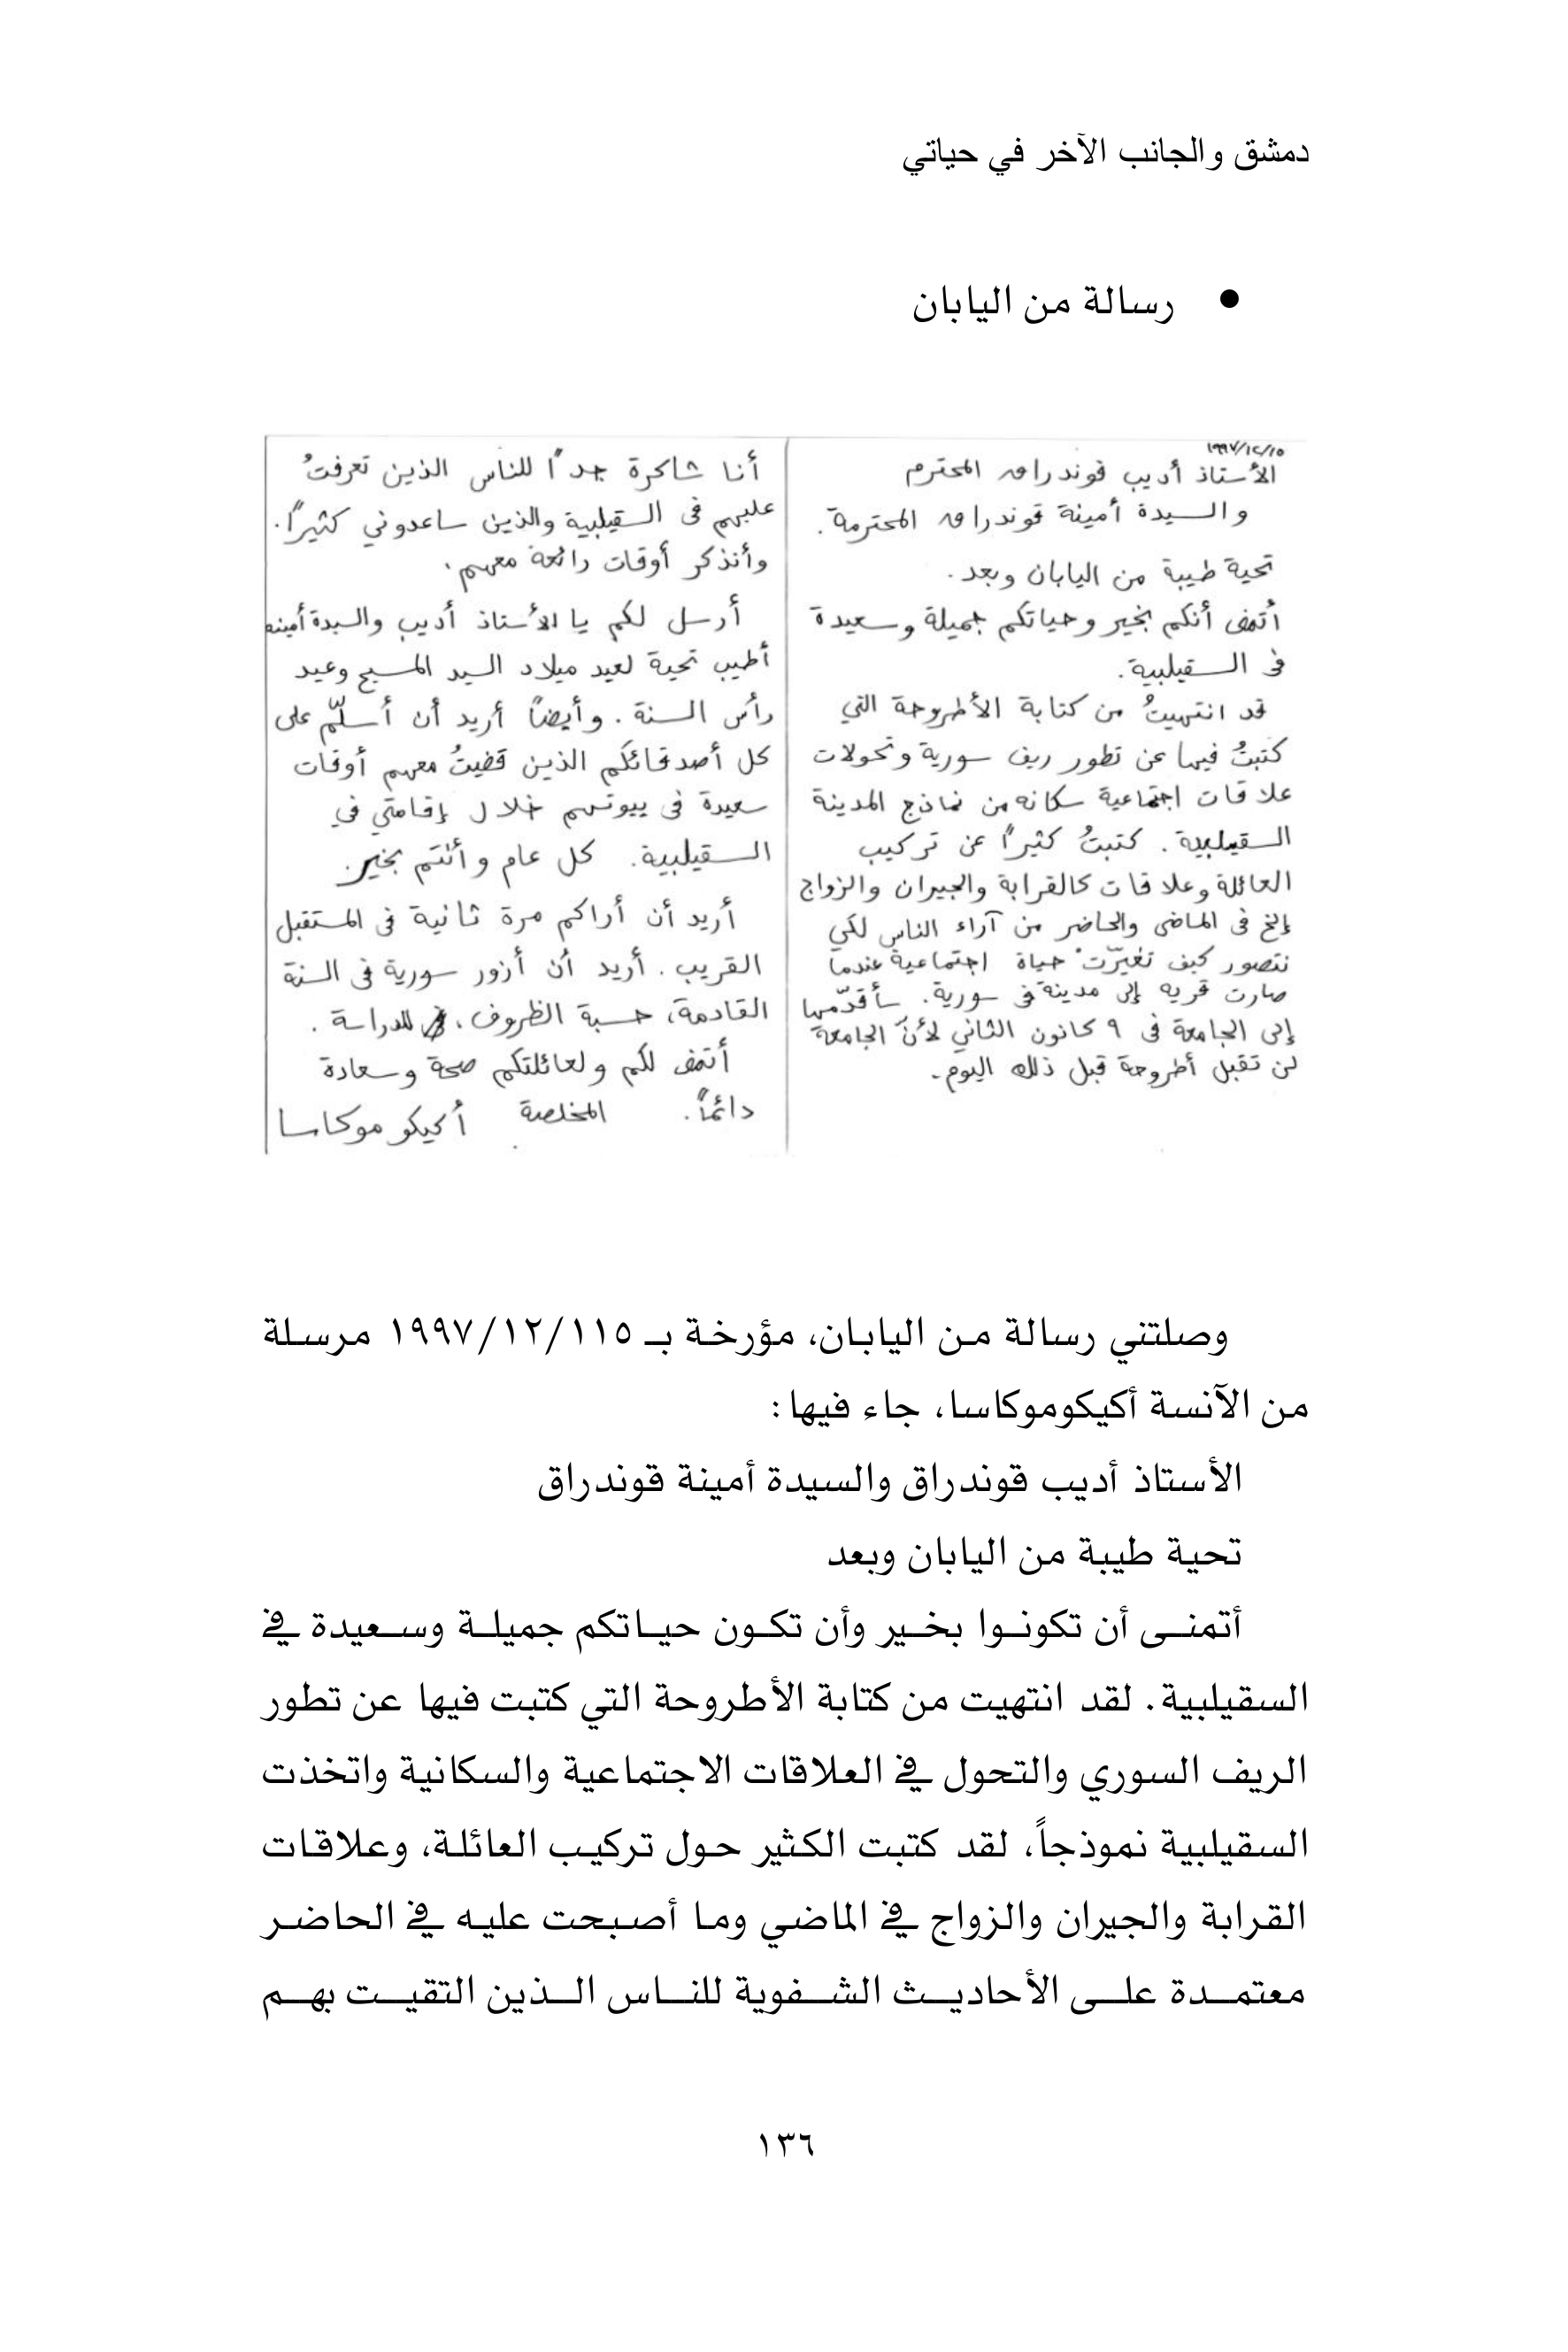 دمشق والجانب الآخر في حياتي
• رسالة من اليابان
١٩٩٧/١٢/١٥
الأستاذ أديب قوندراق المحترم
والسيدة أمينة قوندراق المحترمة.
تحية طيبة من اليابان وبعد.
أتمنى أنكم بخير وحياتكم جميلة وسعيدة
في السقيلبية.
قد انتهيتُ من كتابة الأطروحة التي
كتبتُ فيها عن تطور ريف سورية وتحولات
علاقات اجتماعية سكانه من نماذج المدينة
السقيلبية. كتبتُ كثيراً عن تركيب
العائلة وعلاقات كالقرابة والجيران والزواج
إلخ في الماضي والحاضر من آراء الناس لكي
نتصور كيف تغيّرتْ حياة اجتماعية عندما
صارت قرية إلى مدينة في سورية. سأقدّمها
إلى الجامعة في ٩ كانون الثاني لأنّ الجامعة
لن تقبل أطروحة قبل ذلك اليوم.
أنا شاكرة جداً للناس الذين تعرفتُ
عليهم في السقيلبية والذين ساعدوني كثيراً.
وأتذكر أوقات رائعة معهم.
أرسل لكم يا الأستاذ أديب والسيدة أمينة
أطيب تحية لعيد ميلاد السيد المسيح وعيد
رأس السنة. وأيضاً أريد أن أسلّم على
كل أصدقائكم الذين قضيتُ معهم أوقات
سعيدة في بيوتهم خلال إقامتي في
السقيلبية. كل عام وأنتم بخير.
أريد أن أراكم مرة ثانية في المستقبل
القريب. أريد أن أزور سورية في السنة
القادمة، حسبة الظروف، للدراسة.
أتمنى لكم ولعائلتكم صحة وسعادة
دائماً. المخلصة أكيكو موكاسا
وصلتني رسالة من اليابان، مؤرخة بـ ١٩٩٧/١٢/١١٥ مرسلة
من الآنسة أكيكوموكاسا، جاء فيها:
الأستاذ أديب قوندراق والسيدة أمينة قوندراق
تحية طيبة من اليابان وبعد
أتمنى أن تكونوا بخير وأن تكون حياتكم جميلة وسعيدة في
السقيلبية. لقد انتهيت من كتابة الأطروحة التي كتبت فيها عن تطور
الريف السوري والتحول في العلاقات الاجتماعية والسكانية واتخذت
السقيلبية نموذجاً، لقد كتبت الكثير حول تركيب العائلة، وعلاقات
القرابة والجيران والزواج في الماضي وما أصبحت عليه في الحاضر
معتمدة على الأحاديث الشفوية للناس الذين التقيت بهم
١٣٦